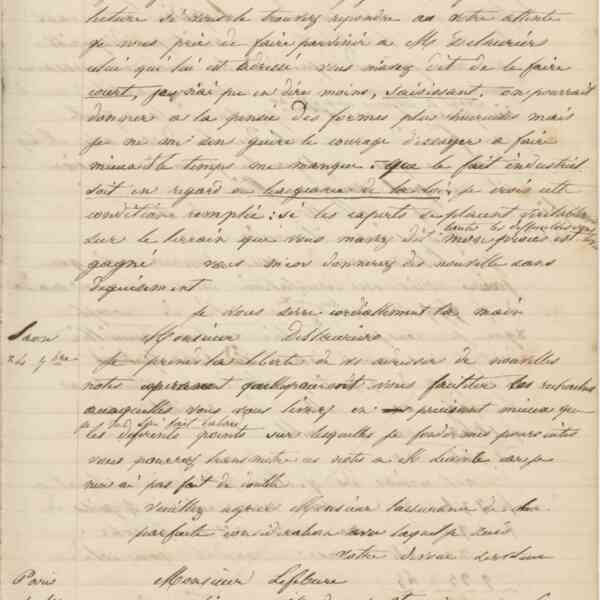 lecture si vous le trouvez repondre a votre attente
je vous prie de faire parvenir a Mr Deslauriers
celui qui lui est adressé vous m'avez dit de le faire
court, j'en ai pu en dire moins, saisissant, on pourrait
donner a la pensée des formes plus heureuses mais
je ne me sens guere le courage d'essayer a faire
mieux et le temps me manque. que le fait industriel
soit en regard de la loi, je crois cette
condition remplie: si les experts se placent
sur le terrain que vous m'avez dit mon procès est
toutes les
gagné vous m'en donnerez des nouvelle sans
deguisement
je vous serre cordialement la main
Laon Monsieur Deslauriers
24 9bre Je prends la liberté de vs adresser de nouvelles
notes esperant vous faciliter les recherches
auxquelles vous vous livrez en precisant mieux que
je l'ai
les diferents points sur lesquelles je fonde mes poursuites
vous pourrez transmettre ces notes a M. car je
n'ai pas fait de double
Veuillez agreer Monsieur l'assurance de la
parfaite consideration avec laquelle je suis
votre devoué serviteur
Paris Monsieur Lefebure